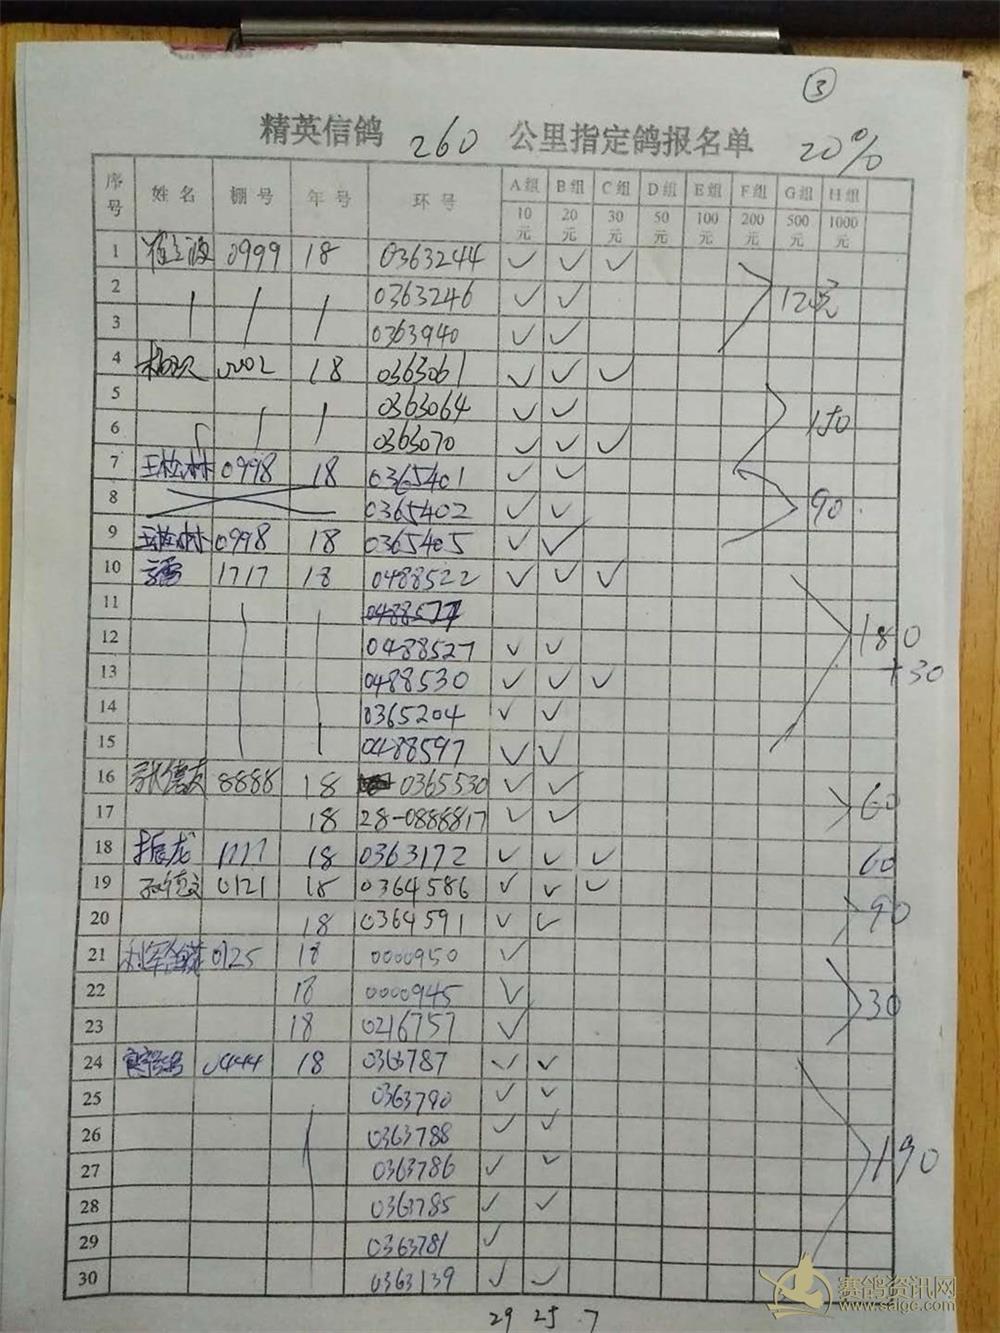 ③
精英信鸽 260 公里指定鸽报名单 20%
序号 姓名 棚号 年号 环号 A组 B组 C组 D组 E组 F组 G组 H组
10元 20元 30元 50元 100元 200元 500元 1000元
1 崔立波 0999 18 0363244 ✓ ✓ ✓
2 0363246 ✓ ✓ 120元
3 0363940 ✓ ✓
4 0002 18 0363061 ✓ ✓ ✓
5 0363064 ✓ ✓
6 0363070 ✓ ✓ ✓ 150
7 王松林 0998 18 0365401 ✓ ✓
8 0365402 ✓ ✓ 90
9 王松林 0998 18 0365405 ✓ ✓
10 1717 18 0488522 ✓ ✓ ✓
11
12 0488527 ✓ ✓ 180
13 0488530 ✓ ✓ ✓ +30
14 0365204 ✓ ✓
15 0488597 ✓ ✓
16 张信友 8888 18 0365530 ✓ ✓
17 18 28-0888817 ✓ ✓ 60
18 振龙 1777 18 0363172 ✓ ✓ ✓ 60
19 0121 18 0364586 ✓ ✓ ✓
20 18 0364591 ✓ ✓ 90
21 0125 18 0000950 ✓
22 18 0000945 ✓
23 18 0216757 ✓ 30
24 0444 18 0363787 ✓ ✓
25 0363790 ✓ ✓
26 0363788 ✓ ✓
27 0363786 ✓ ✓ 190
28 0363785 ✓ ✓
29 0363781 ✓
30 0363139 ✓ ✓
29 25 . 7
赛鸽资讯网
www.saigc.com